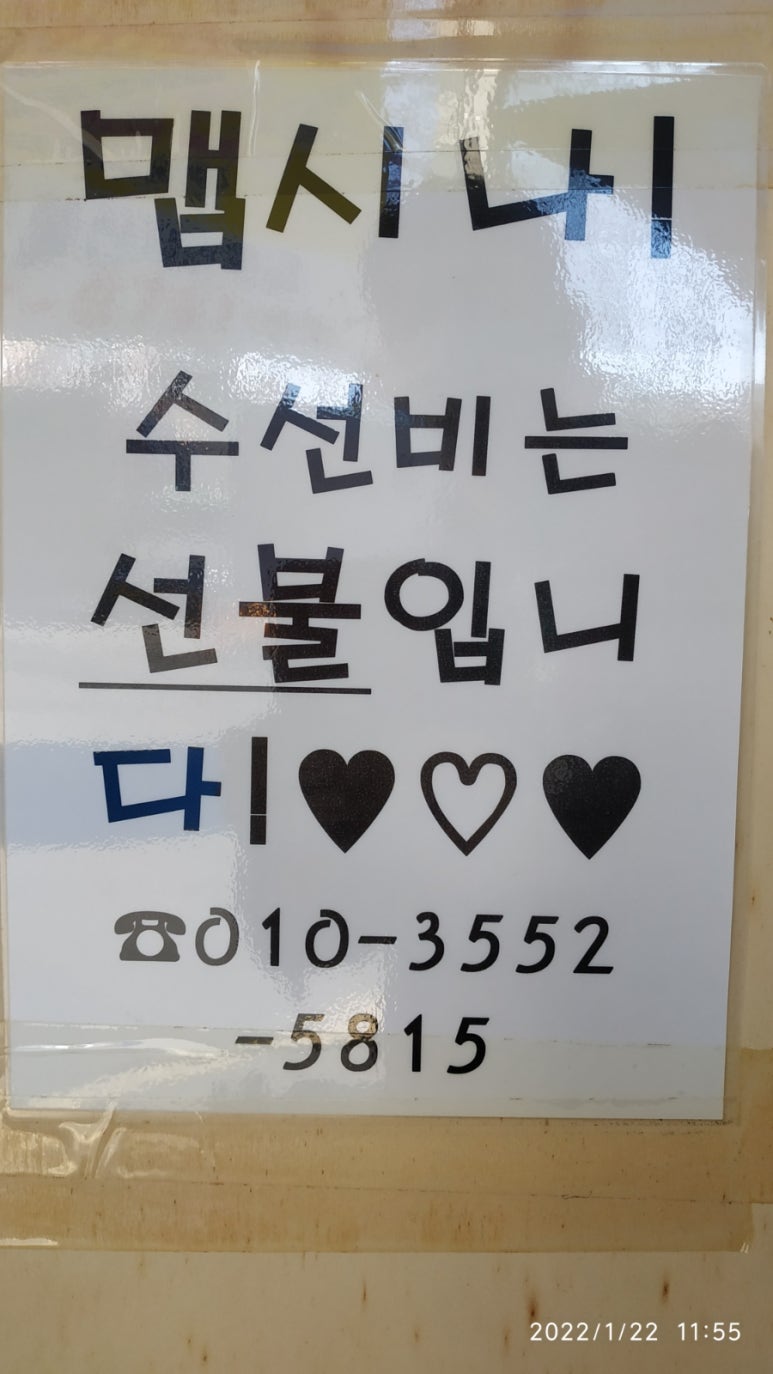 맵시 나ㅣ
수선비는
선불입니
다ㅣ♥♡♥
☎010-3552
-5815
2022/1/22 11:55